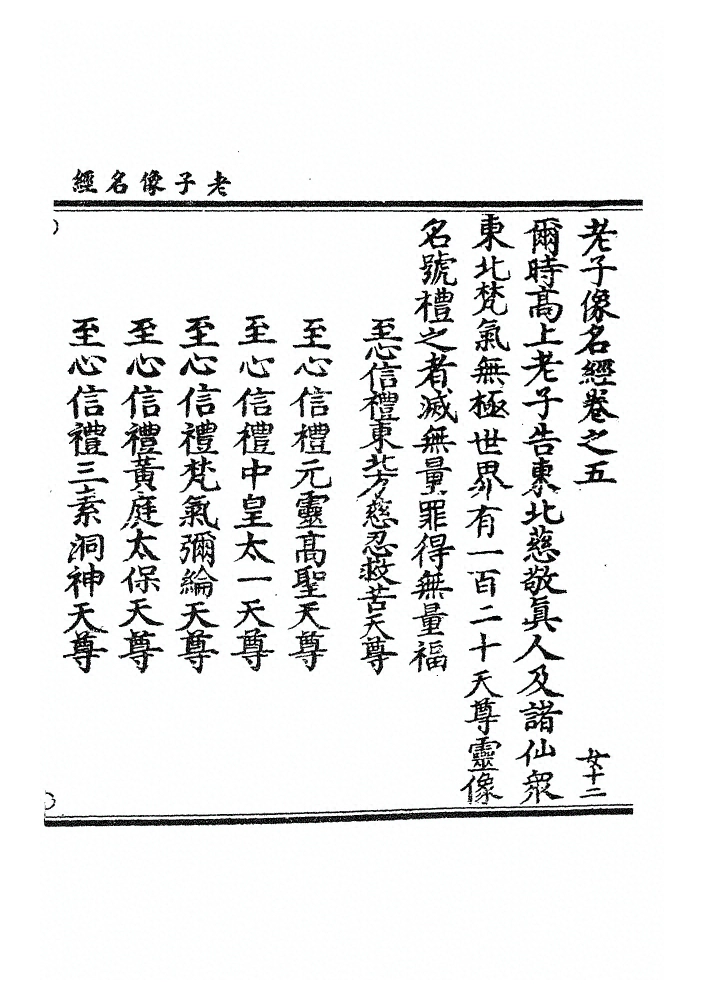 老子像名經
老子像名經卷之五
女十二
爾時高上老子告東北慈敬真人及諸仙衆
東北梵氣無極世界有一百二十天尊靈像
名號禮之者滅無量罪得無量福
至心信禮東北方慈忍救苦天尊
至心信禮元靈高聖天尊
至心信禮中皇太一天尊
至心信禮梵氣彌綸天尊
至心信禮黃庭太保天尊
至心信禮三素洞神天尊